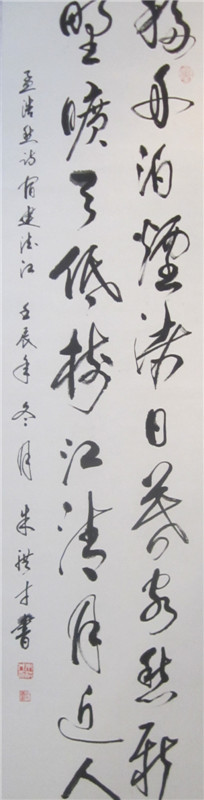 移舟泊煙渚日暮客愁新
野曠天低樹江清月近人
孟浩然诗宿建德江 壬辰年冬月 朱祺才書